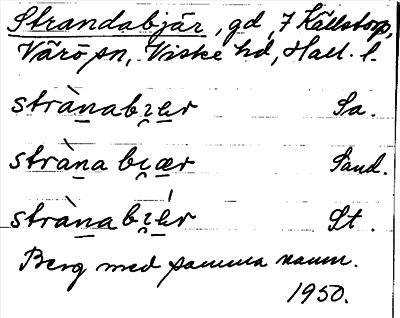 Strandabjär, gd, 7 Källstorp,
Värö sn, Viske hd, Hall. l.
strànabɪ̯ær Sa.
stràna bɪ̯ær Sand.
strànabɪ̯ǽr St.
Berg med samma namn.
1950.